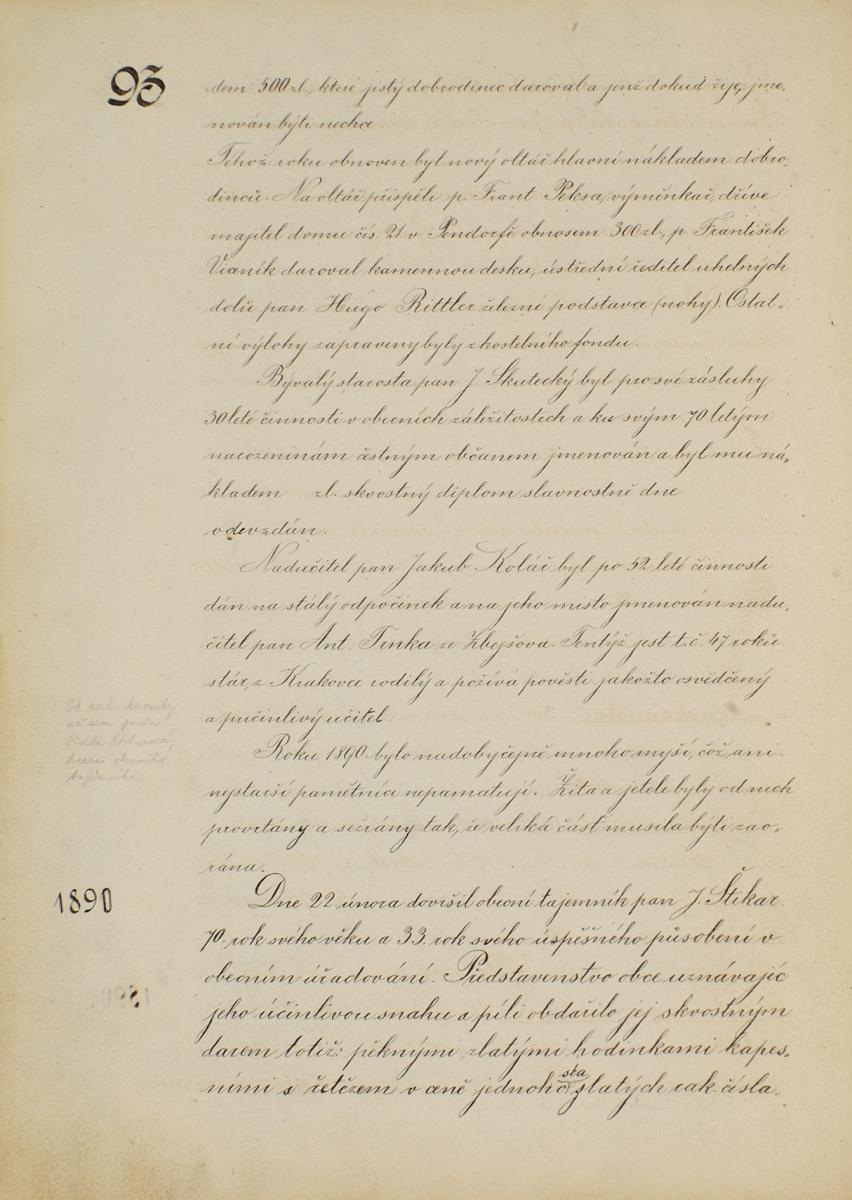 93
dem 500 zl., které jistý dobrodinec daroval a jenž dokud žije, jme-
nován býti nechce.
Téhož roku obnoven byl nový oltář hlavní nákladem dobro-
dinců. Na oltář přispěli p. Frant. Peksa, výměnkář, dříve
majitel domu čís. 21 v Pendorfě obnosem 300 zl., p. František
Vičaník daroval kamennou desku, ústřední ředitel uhelných
dolů pan Hugo Rittler železné podstavce (nohy). Ostat-
ní výlohy zapraveny byly z kostelního fondu.
Bývalý starosta pan J. Skutecký byl pro své zásluhy
30leté činnosti v obecních záležitostech a ku svým 70 letým
narozeninám čestným občanem jmenován a byl mu ná-
kladem zl. skvostný diplom slavnostně dne
odevzdán.
Nadučitel pan Jakub Kolář byl po 52 leté činnosti
dán na stálý odpočinek a na jeho místo jmenován nadu-
čitel pan Ant. Trnka ze Zbejšova. Tentýž jest t. č. 47 roků
stár, z Krakovce rodilý a požívá pověsti jakožto osvědčený
a pučinlivý učitel.
Od zač. kroniky
Roku 1890 bylo nadobyčejně mnoho myší, což ani
nejstarší pamětníci nepamatují. Žita a jetele byly od nich
provrtány a sežrány tak, že veliká část musila býti zao-
rána.
1890
Dne 22 února dovršil obecní tajemník pan J. Štikar
70. rok svého věku a 33. rok svého úspěšného působení v
obecním úřadování. Představenstvo obce uznávajíc
jeho účinlivou snahu a píli obdařilo jej skvostným
darem totiž: pěknými zlatými hodinkami kapes-
ními s řetězem v ceně jednoho sta zlatých rak. čísla.